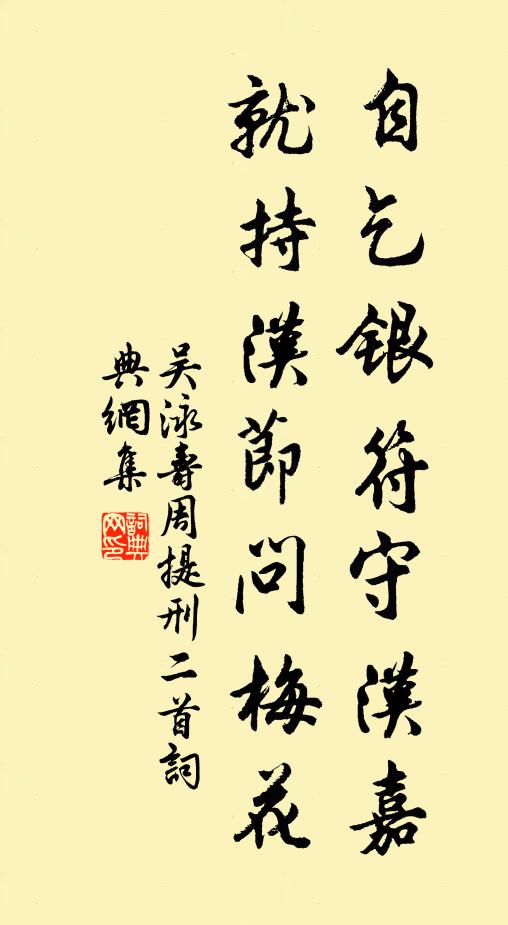 自乞銀符守漢嘉
就持漢節問梅花
吴泳壽周提刑二首詞
典網集
詞典